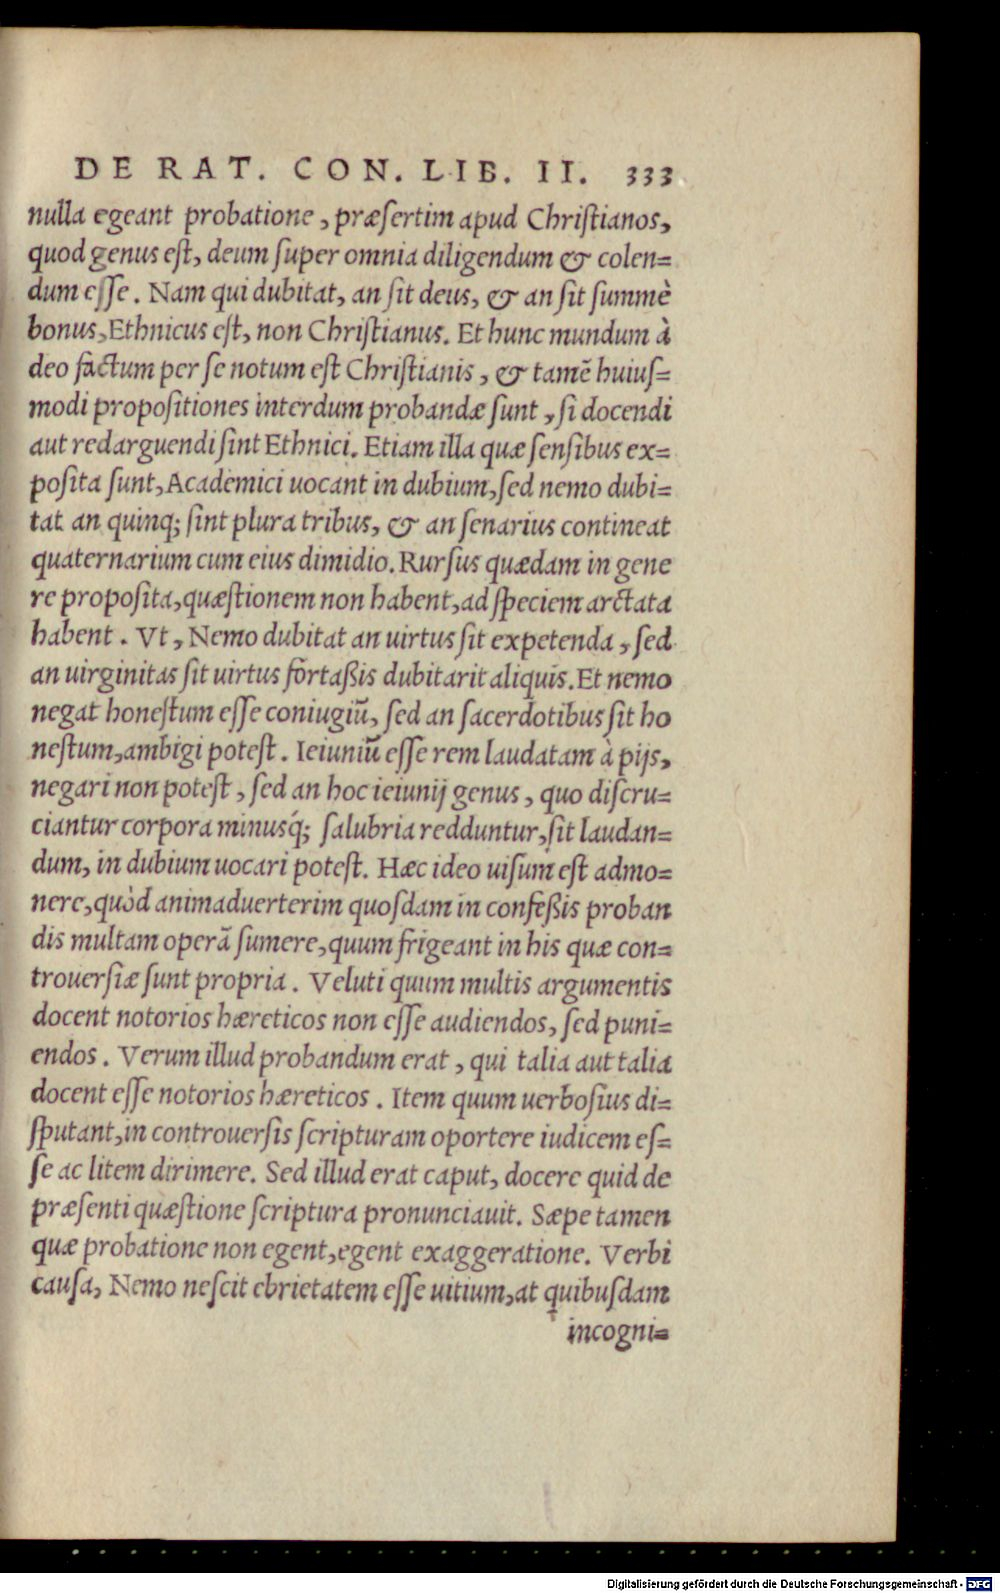 DE RAT. CON. LIB. II. 333
nulla egeant probatione, præſertim apud Chriſtianos,
quod genus eſt, deum ſuper omnia diligendum & colen=
dum eſſe. Nam qui dubitat, an ſit deus, & an ſit ſummè
bonus, Ethnicus eſt, non Chriſtianus. Et hunc mundum à
deo factum per ſe notum eſt Chriſtianis, & tamẽ huiuſ=
modi propoſitiones interdum probandæ ſunt, ſi docendi
aut redarguendi ſint Ethnici. Etiam illa quæ ſenſibus ex=
poſita ſunt, Academici uocant in dubium, ſed nemo dubi=
tat an quinq; ſint plura tribus, & an ſenarius contineat
quaternarium cum eius dimidio. Rurſus quædam in gene
re propoſita, quæſtionem non habent, ad ſpeciem arctata
habent. Vt, Nemo dubitat an uirtus ſit expetenda, ſed
an uirginitas ſit uirtus fortaßis dubitarit aliquis. Et nemo
negat honeſtum eſſe coniugiũ, ſed an ſacerdotibus ſit ho
neſtum, ambigi poteſt. Ieiuniũ eſſe rem laudatam à pijs,
negari non poteſt, ſed an hoc ieiunij genus, quo diſcru=
ciantur corpora minusq́; ſalubria redduntur, ſit laudan=
dum, in dubium uocari poteſt. Hæc ideo uiſum eſt admo=
nere, quòd animaduerterim quoſdam in confeßis proban
dis multam operã ſumere, quum frigeant in his quæ con=
trouerſiæ ſunt propria. Veluti quum multis argumentis
docent notorios hæreticos non eſſe audiendos, ſed puni=
endos. Verum illud probandum erat, qui talia aut talia
docent eſſe notorios hæreticos. Item quum uerboſius di=
ſputant, in controuerſis ſcripturam oportere iudicem eſ=
ſe ac litem dirimere. Sed illud erat caput, docere quid de
præſenti quæſtione ſcriptura pronunciauit. Sæpe tamen
quæ probatione non egent, egent exaggeratione. Verbi
cauſa, Nemo neſcit ebrietatem eſſe uitium, at quibuſdam
incogni=
Digitalisierung gefördert durch die Deutsche Forschungsgemeinschaft - DFG